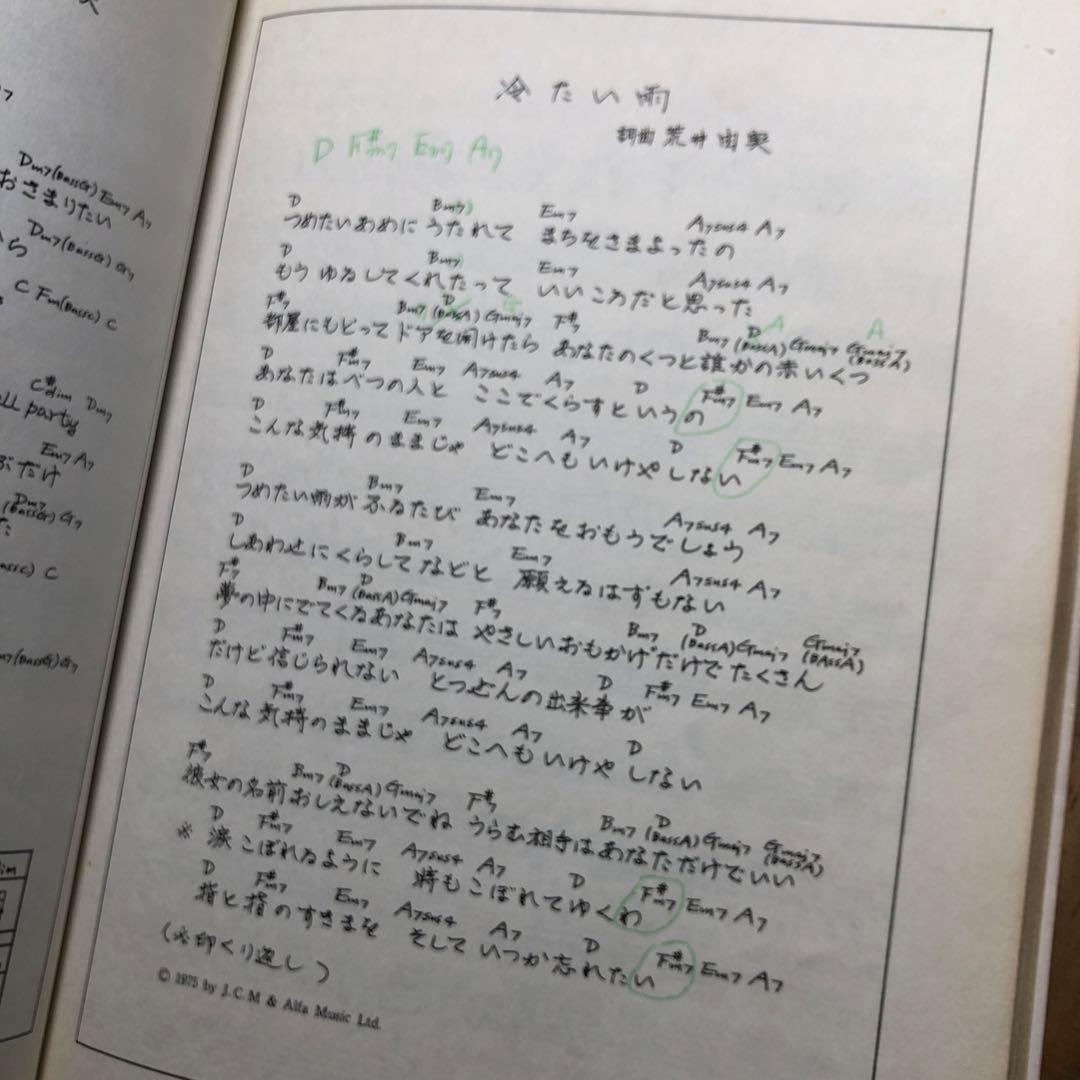 Dm7(BassG) Em7 A7
おさまりたい
Dm7(BassG) G7
から
C Fm(BassC) C
C#dim Dm7
ll party
Em7 A7
ぶだけ
Dm7
(BassG) G7
た
BassC) C
m7(BassG)G7
im
冷たい雨
詞曲 荒井由実
D F#m7 Em7 A7
D Bm7 Em7 A7sus4 A7
つめたいあめに うたれて まちをさまよったの
D Bm7 Em7 A7sus4 A7
もう ゆるしてくれたって いいころだと思った
F#7 Bm7 D(BassA) Gmaj7 G F#7 Bm7 D(BassA) A Gmaj7 Gmaj7(BassA) A
部屋にもどって ドアを開けたら あなたのくつと誰かの赤いくつ
D F#m7 Em7 A7sus4 A7 D F#m7 Em7 A7
あなたはべつの人と ここでくらすというの
D F#m7 Em7 A7sus4 A7 D F#m7 Em7 A7
こんな気持のままじゃ どこへもいけやしない
D Bm7 Em7 A7sus4 A7
つめたい雨が ふるたび あなたをおもうでしょう
D Bm7 Em7 A7sus4 A7
しあわせにくらしてなどと 願えるはずもない
F#7 Bm7 D(BassA) Gmaj7 F#7 Bm7 D(BassA) Gmaj7 Gmaj7(BASSA)
夢の中にでてくるあなたは やさしいおもかげだけでたくさん
D F#m7 Em7 A7sus4 A7 D F#m7 Em7 A7
だけど信じられない とつぜんの出来事が
D F#m7 Em7 A7sus4 A7 D
こんな気持のままじゃ どこへもいけやしない
F#7 Bm7 D(BassA) Gmaj7 F#7 Bm7 D(BassA) Gmaj7 Gmaj7(BASSA)
彼女の名前おしえないでね うらむ相手はあなただけでいい
D F#m7 Em7 A7sus4 A7 D F#m7 Em7 A7
※涙こぼれるように 時もこぼれてゆくわ
D F#m7 Em7 A7sus4 A7 D F#m7 Em7 A7
指と指のすきまを そして いつか忘れたい
(※印くり返し)
© 1975 by J.C.M & Alfa Music Ltd.